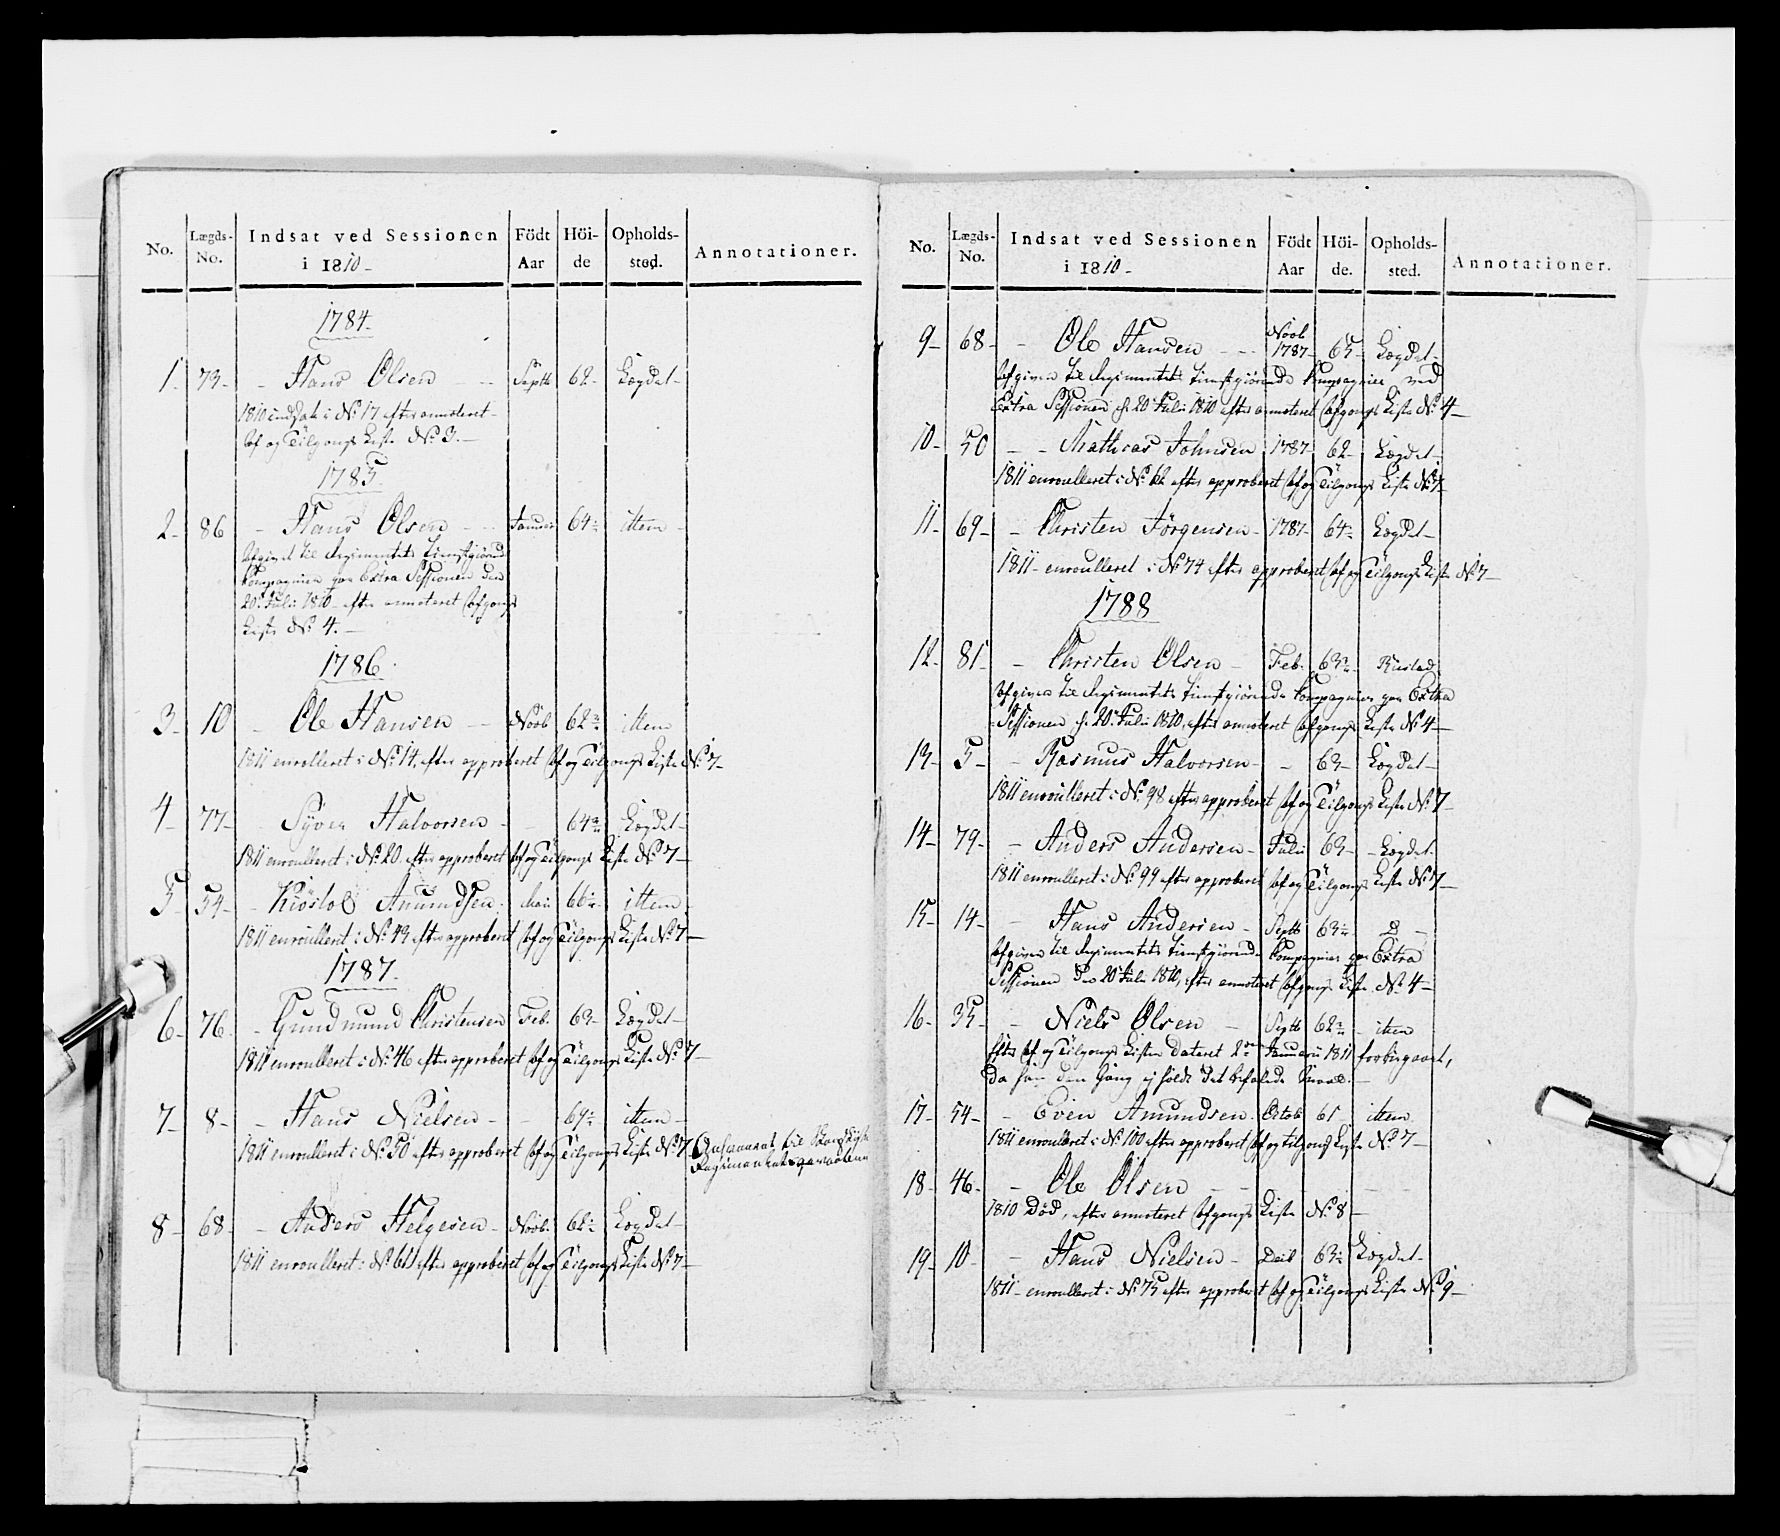 No. Lægds-No. Indsat ved Sessionen i 1810 - Födt Aar Höi-de Opholds-sted. Annotationer.
1784.
1. 73. - Hans Olsen - - Septb 62. Lægdet -
1810 indsat i No. 17 efter annoteret
Af og Tilgangs Liste No. 3. -
1785.
2. 86 - Hans Olsen - - Januar 64 ittem -
Afgivet til Regimentets tienstgiörende
Kompagnier paa Extra Sessionen den
20. Juli 1810 efter annoteret Afgangs
Liste No. 4. -
1786.
3. 10 - Ole Hansen - - Novb. 62 ittem
1811 enroulleret i No. 14, efter approberet Af og Tilgangs Liste No. 7 -
4. 77 - Syver Halvorsen - - 64 Lægdet -
1811 enroulleret i No. 20 efter approberet Af og Tilgangs Liste No. 7 -
5. 54 - Kiöstol Amundsen. Mai 66 ittem
1811 enroulleret i No. 43 efter approberet Af og Tilgangs Liste No. 7 -
1787.
6. 76. - Gundmund Christensen Feb. 63 - Lægdet -
1811 enroulleret i No. 46 efter approberet Af og Tilgangs Liste No. 7 -
7. 8 - - Hans Nielsen - - 69 ittem -
1811 enroulleret i No. 50 efter approberet Af og Tilgangs Liste No. 7
8. 68 - - Anders Helgesen - Novb. 62 Lægdet -
1811 enroulleret i No. 61 efter approberet Af og Tilgangs Liste No. 7 -
No. Lægds-No. Indsat ved Sessionen i 1810 - Födt Aar Höi-de. Opholds-sted. Annotationer.
9 - 68 - - Ole Hansen - - Novb 1787 - 65 - Lægdet -
Afgiven til Regimentets tienstgiörende Kompagnier ved
Extra Sessionen d. 20 Juli 1810 efter annoteret Afgangs Liste No. 4 -
10 - 50 - - Mathias Johnsen 1787 - 62 - Lægdet -
1811 enroulleret i No. 62 efter approberet Af og Tilgangs Liste No. 7
11 - 69 - - Christen Jörgensen - 1787 - 64 Lægdet -
1811 - enroulleret i No. 74 efter approberet Af og Tilgangs Liste No. 7 -
1788
12 - 81 - - Christen Olsen - Feb. 63 Rustad
Afgiven til Regimentets tienstgiörende Kompagnier paa Extra
Sessionen d. 20. Juli 1810, efter annoteret Afgangs Liste No. 4 -
13 - 5 - - Rasmus Halvorsen - - 63 - Lægdet -
1811 enroulleret i No. 98 efter approberet Af og Tilgangs Liste No. 7 -
14 - 79 - - Anders Andersen - Juli 63 - Lægdet.
1811 enroulleret i No. 99 efter approberet Af og Tilgangs Liste No. 7 -
15 - 14 - - Hans Andersen - Septb 63 D -
Afgiven til Regimentets tienstgiörende Kompagnier paa Extra
Sessionen den 20 Juli 1810, efter annoteret Afgangs Liste No. 4 -
16 - 35 - - Niels Olsen - Septb 62 - ittem
Efter Af og Tilgangs Listen dateret 2den Januarii 1811 forbigaaet,
da han den Gang ej holdt det befalede Maal. -
17 - 54 - - Even Amundsen. Octob 61 ittem
1811 enroulleret i No. 100 efter approberet Af og tilgangs Liste No. 7 -
18 - 46 - - Ole Olsen - -
1810 Död, efter annoteret Afgangs Liste No. 8 -
19 - 10 - - Hans Nielsen - Decb 63 Lægdet -
1811 - enroulleret i No. 75 efter approberet Af og Tilgangs Liste No. 9 -